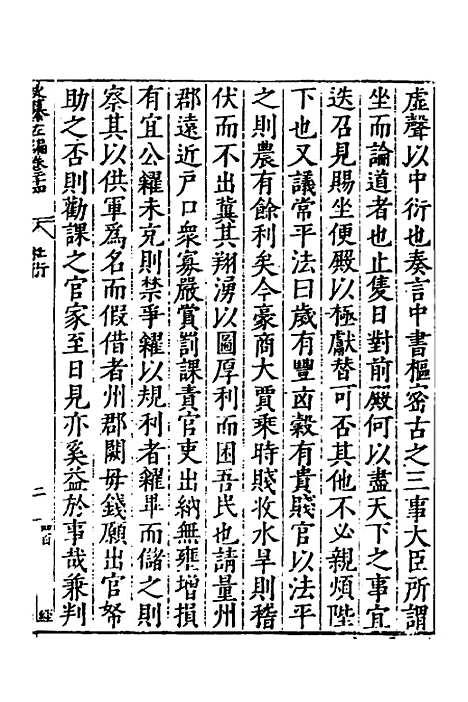 虛聲以中衍也奏言中書樞密古之三事大臣所謂
坐而論道者也止隻日對前殿何以盡天下之事宜
迭召見賜坐便殿以極獻替可否其他不必親煩陛
下也又議常平法曰歲有豐凶穀有貴賤官以法平
之則農有餘利矣今豪商大賈乘時賤收水旱則稽
伏而不出冀其翔湧以圖厚利而困吾民也請量州
郡遠近戶口衆寡嚴賞罰課責官吏出納無壅增損
有宜公糴未充則禁爭糴以規利者糴畢而儲之則
察其以供軍爲名而假借者州郡闕毋錢願出官帑
助之否則勸課之官家至日見亦奚益於事哉兼判
史纂左編卷 杜衍